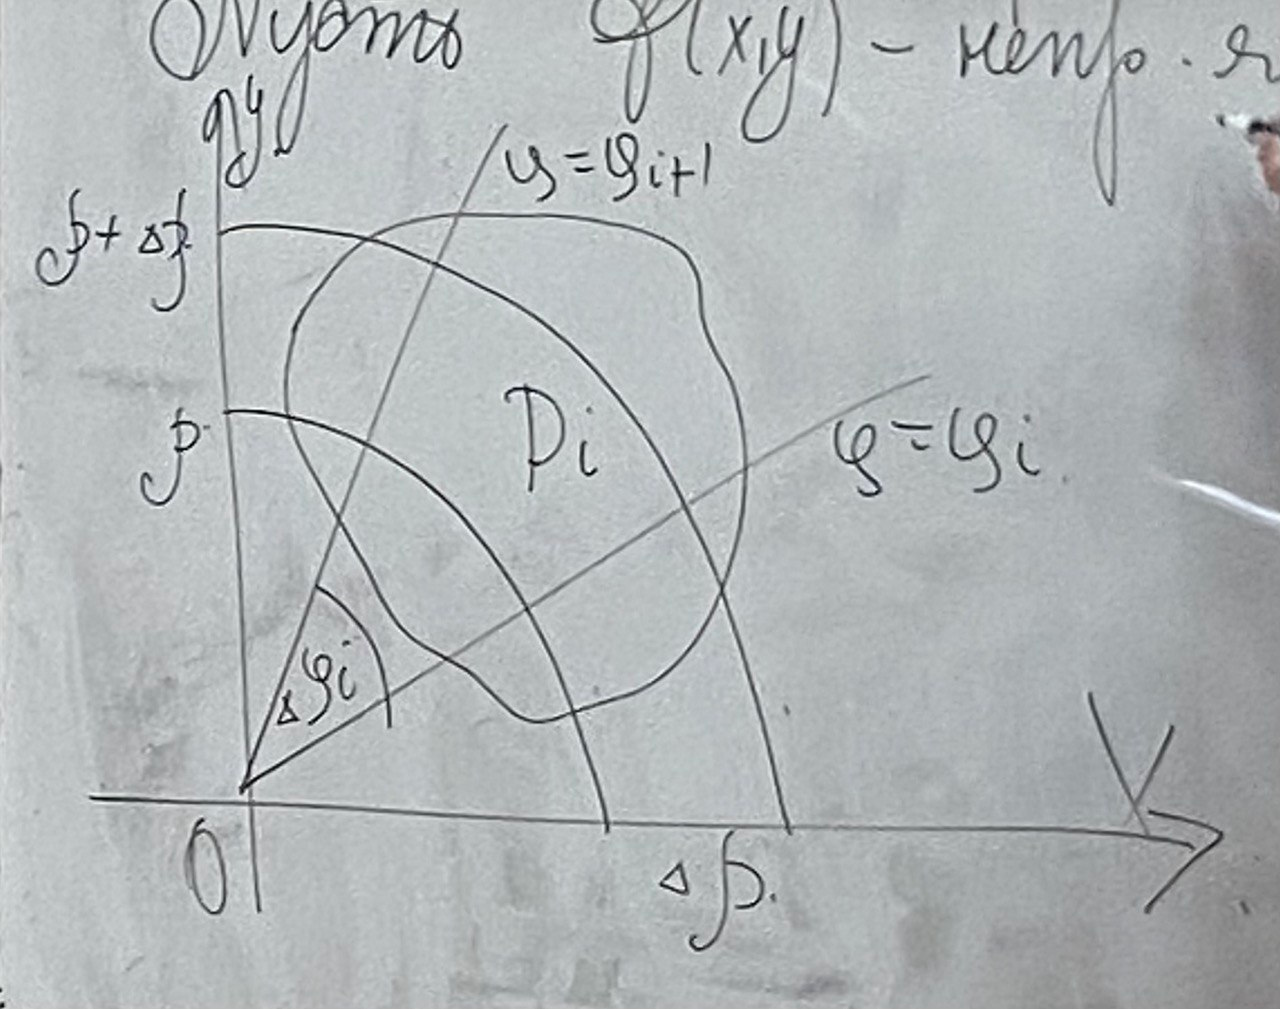 Пусть f(x,y) - непр.
y
φ = φi+1
ρ + Δρ
Di
ρ
φ = φi
Δφi
0
Δρ